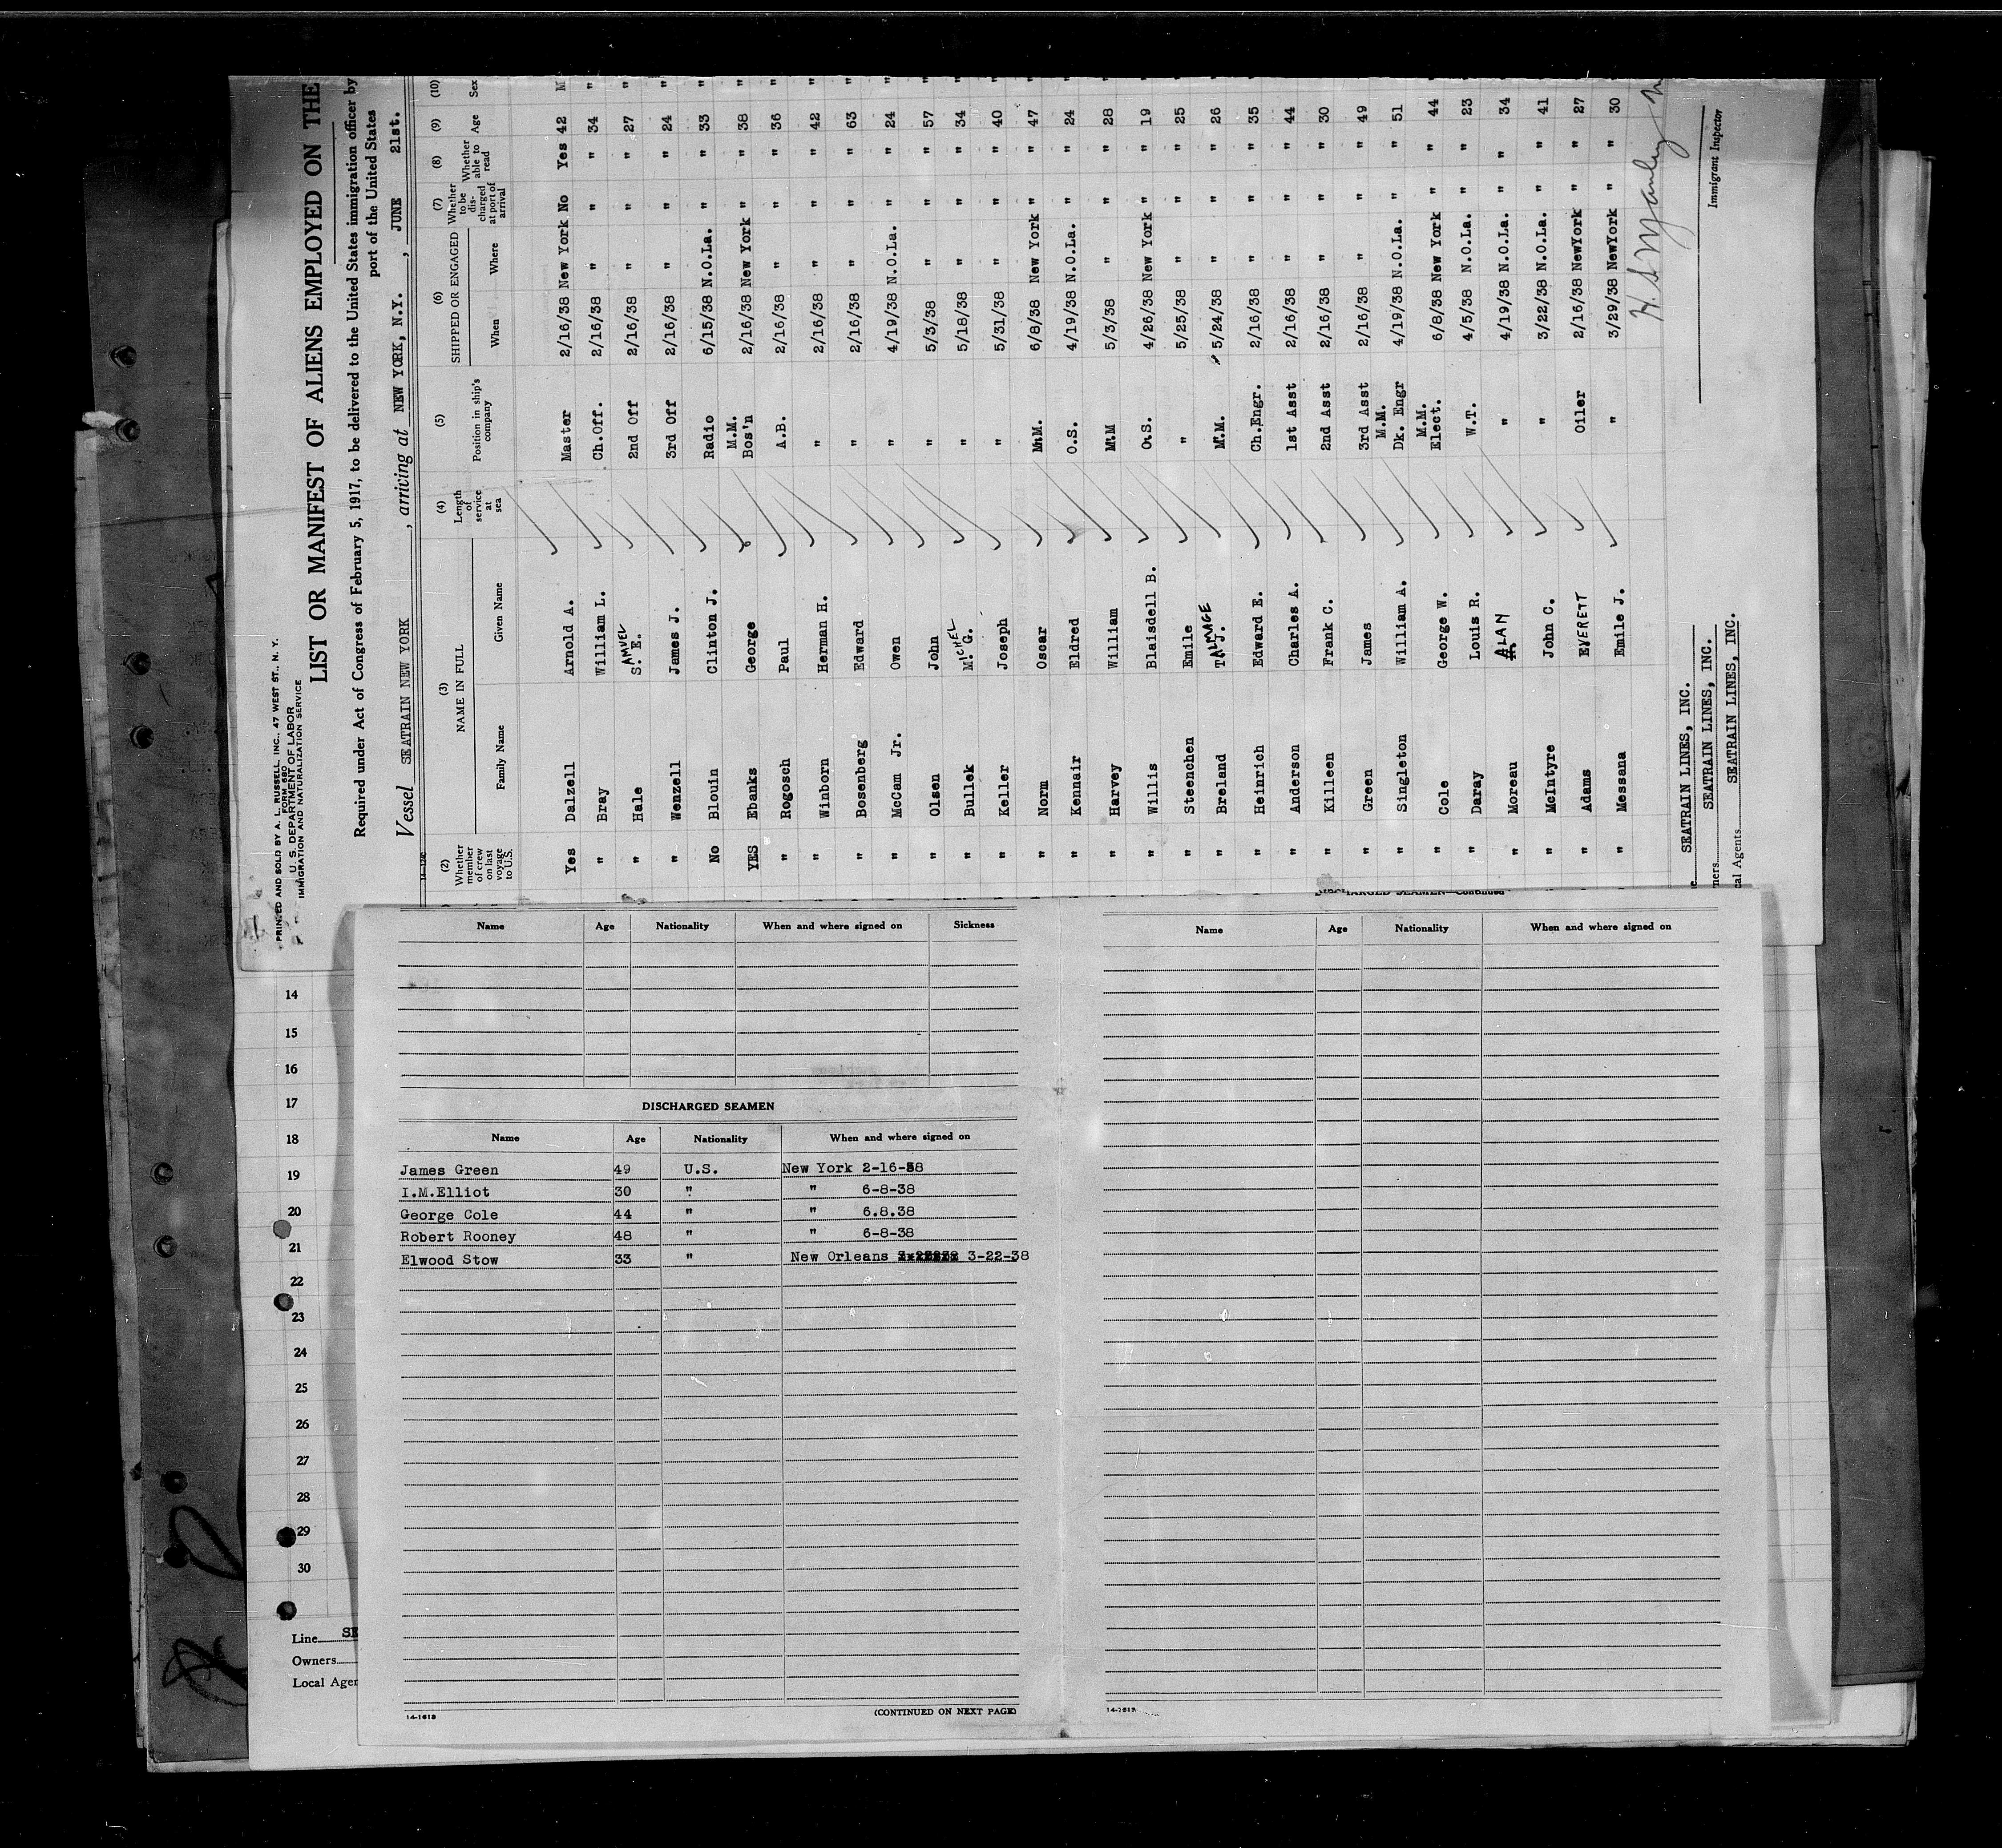 PRINTED AND SOLD BY A. L. RUSSELL, INC., 47 WEST ST., N. Y.
FORM 680
U. S. DEPARTMENT OF LABOR
IMMIGRATION AND NATURALIZATION SERVICE
LIST OR MANIFEST OF ALIENS EMPLOYED ON THE
Required under Act of Congress of February 5, 1917, to be delivered to the United States immigration officer by
port of the United States
Vessel SEATRAIN NEW YORK, arriving at NEW YORK, N.Y., JUNE 21st.
(2) Whether member of crew on last voyage to U.S. (3) NAME IN FULL Family Name Given Name (4) Length of service at sea (5) Position in ship's company (6) SHIPPED OR ENGAGED When Where (7) Whether to be discharged at port of arrival (8) Whether able to read (9) Age (10) Sex
Yes Dalzell Arnold A. Master 2/16/38 New York No Yes 42 M
" Bray William L. Ch.Off. 2/16/38 " " " 34 "
" Hale SAMUEL S. E. 2nd Off 2/16/38 " " " 27 "
" Wenzell James J. 3rd Off 2/16/38 " " " 24 "
No Blouin Clinton J. Radio 6/15/38 N.O.La. " " 33 "
YES Ebanks George M.M. Bos'n 2/16/38 New York " " 38 "
" Rogosch Paul A.B. 2/16/38 " " " 36 "
" Winborn Herman H. " 2/16/38 " " " 42 "
" Bosenberg Edward " 2/16/38 " " " 63 "
" McCam Jr. Owen " 4/19/38 N.O.La. " " 24 "
" Olsen John " 5/3/38 " " " 57 "
" Bullek MICHEL M. G. " 5/18/38 " " " 34 "
" Keller Joseph " 5/31/38 " " " 40 "
" Norm Oscar M.M. 6/8/38 New York " " 47 "
" Kennair Eldred O.S. 4/19/38 N.O.La. " " 24 "
" Harvey William M.M 5/3/38 " " " 28 "
" Willis Blaisdell B. O.S. 4/26/38 New York " " 19 "
" Steenchen Emile " 5/25/38 " " " 25 "
" Breland TALMAGE T.J. M.M. 5/24/38 " " " 26 "
" Heinrich Edward E. Ch.Engr. 2/16/38 " " " 35 "
" Anderson Charles A. 1st Asst 2/16/38 " " " 44 "
" Killeen Frank C. 2nd Asst 2/16/38 " " " 30 "
" Green James 3rd Asst 2/16/38 " " " 49 "
" Singleton William A. M.M. Dk. Engr 4/19/38 N.O.La. " " 51 "
" Cole George W. M.M. Elect. 6/8/38 New York " " 44 "
" Daray Louis R. W.T. 4/5/38 N.O.La. " " 23 "
" Moreau ALAN " 4/19/38 N.O.La. " " 34 "
" McIntyre John C. " 3/22/38 N.O.La. " " 41 "
" Adams EVERETT Oiler 2/16/38 NewYork " " 27 "
" Messana Emile J. " 3/29/38 NewYork " " 30 "
SEATRAIN LINES, INC.
SEATRAIN LINES, INC.
cal Agents SEATRAIN LINES, INC.
Immigrant Inspector
14
15
16
17
18
19
20
21
22
23
24
25
26
27
28
29
30
Line SE
Owners
Local Agen
Name Age Nationality When and where signed on Sickness
DISCHARGED SEAMEN
Name Age Nationality When and where signed on
James Green 49 U.S. New York 2-16-38
I.M.Elliot 30 " " 6-8-38
George Cole 44 " " 6.8.38
Robert Rooney 48 " " 6-8-38
Elwood Stow 33 " New Orleans 3-22-38
14-1618
(CONTINUED ON NEXT PAGE)
DISCHARGED SEAMEN—Continued
Name Age Nationality When and where signed on